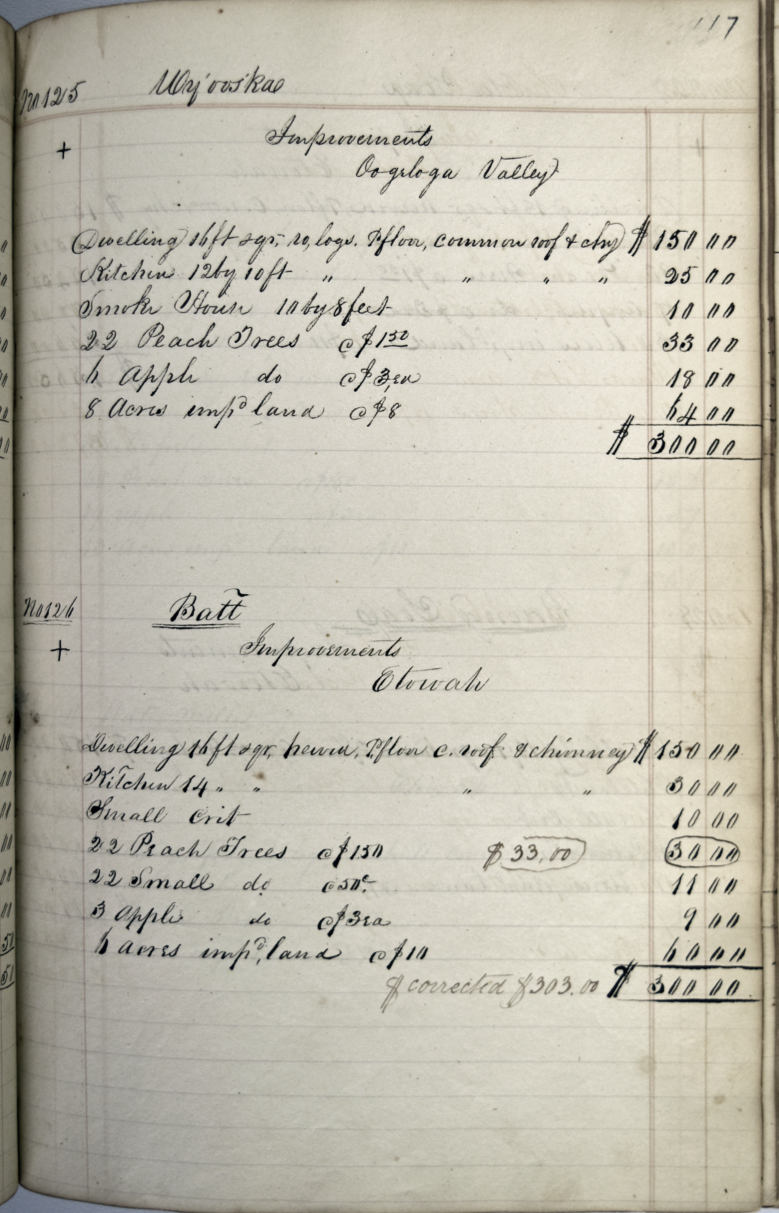 117
No 125 Wyooskae
+ Improvements
Oogeloga Valley
Dwelling 16ft sqr, ro, logs. P.floor, common roof & chy $ 150 00
Kitchen 12 by 10 ft " " " " 25 00
Smoke House 10 by 8 feet 10 00
22 Peach Trees @ $1 50 33 00
6 Apple do @ $3, ea 18 00
8 Acres impd land @ $8 64 00
$ 300 00
No 126 Batt
+ Improvements
Etowah
Dwelling 16ft sqr, hewed, P.floor c. roof & chimney $ 150 00
Kitchen 14 " " " " 30 00
Small Crib 10 00
22 Peach Trees @ $1 50 $33.00 30 00
22 Small do @ 50c 11 00
3 Apple do @ $3 ea 9 00
6 acres impd, land @ $10 60 00
$ corrected $303.00 $ 300 00